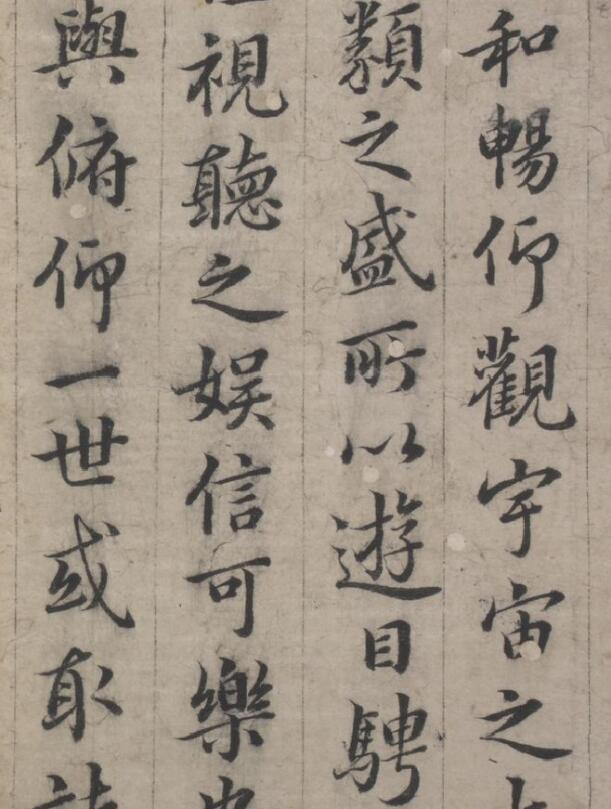 和暢仰觀宇宙之
類之盛所以遊目騁
視聽之娱信可樂也
與俯仰一世或取諸